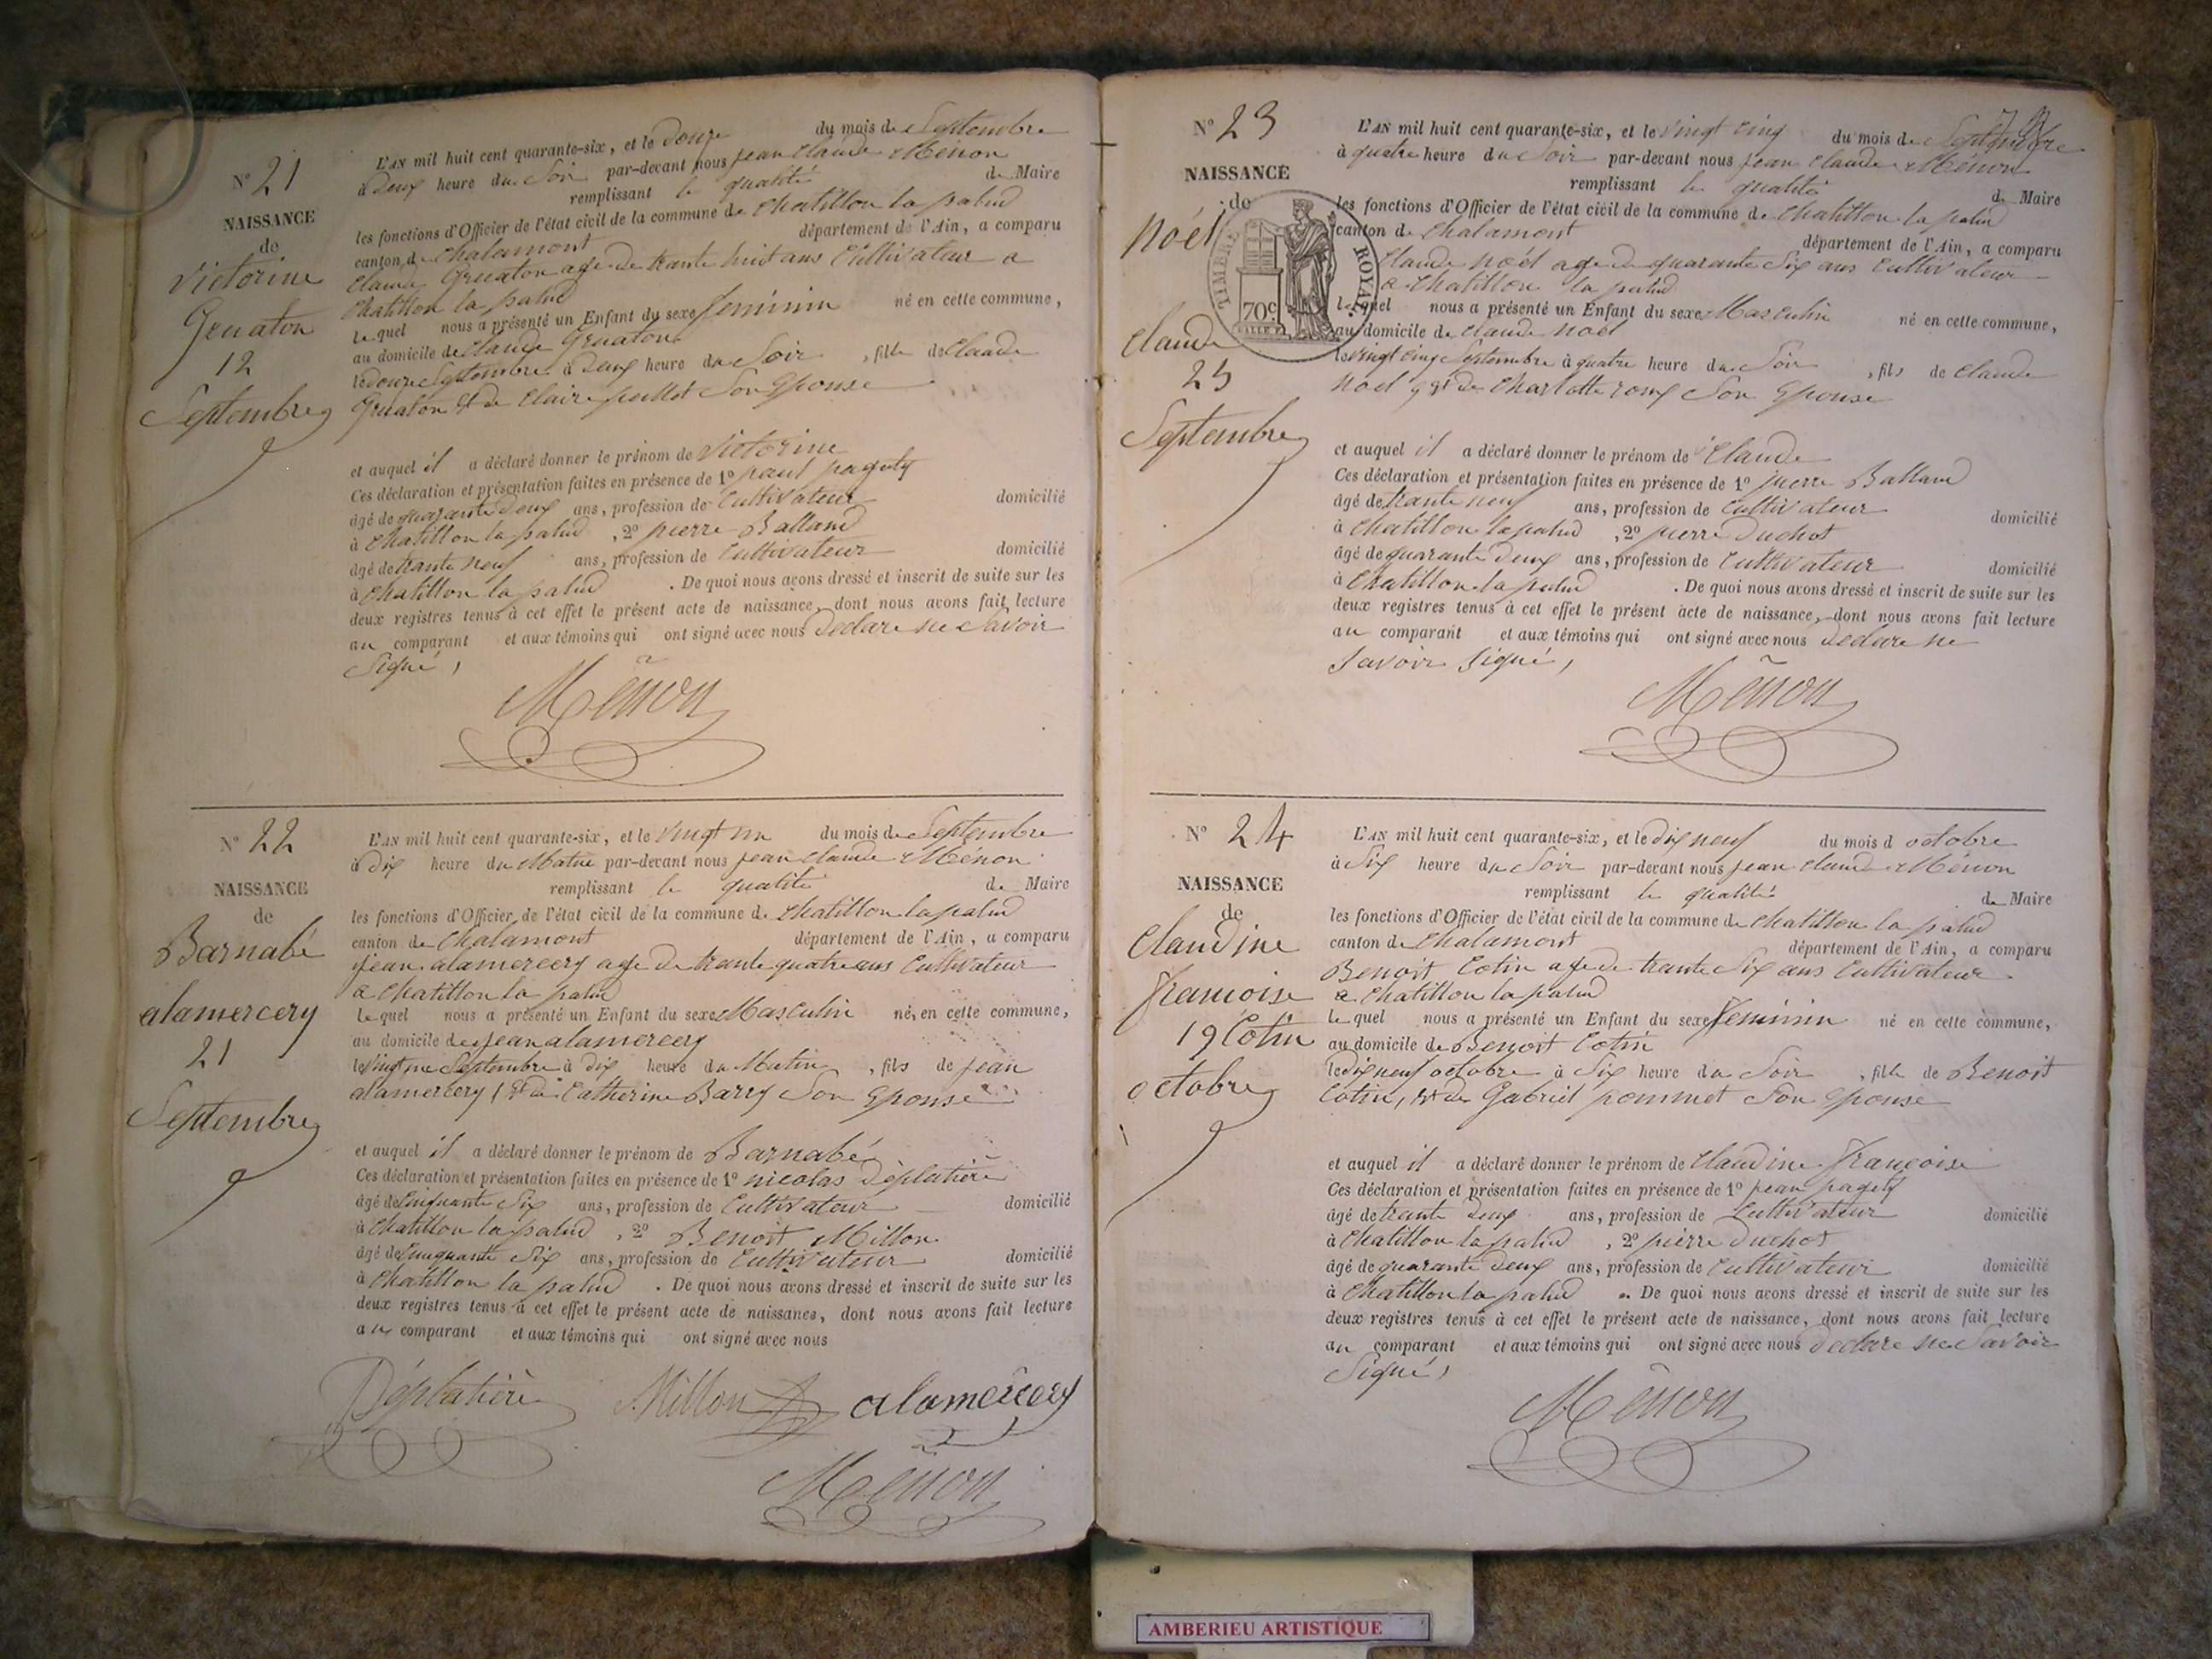 N° 21
NAISSANCE
de
Victorine
Gruaton
12
Septembre
L'AN mil huit cent quarante-six, et le Douze du mois de Septembre
à Deux heure du Soir par-devant nous jean Claude Ménon
remplissant la qualité de Maire
les fonctions d'Officier de l'état civil de la commune de Chatillon la palud
canton de Chalamont département de l'Ain, a comparu
Claude Gruaton age de trante huit ans Cultivateur a
Chatillon la palud
lequel nous a présenté un Enfant du sexe feminin né en cette commune,
au domicile de Claude Gruaton
le douze Septembre à Deux heure du Soir, fille de Claude
Gruaton et de Claire pellet Son Epouse
et auquel il a déclaré donner le prénom de Victorine
Ces déclaration et présentation faites en présence de 1° paul pagety
âgé de quarante Deux ans, profession de Cultivateur domicilié
à Chatillon la palud, 2° pierre Balland
âgé de trante neuf ans, profession de Cultivateur domicilié
à Chatillon la palud. De quoi nous avons dressé et inscrit de suite sur les
deux registres tenus à cet effet le présent acte de naissance, dont nous avons fait lecture
au comparant et aux témoins qui ont signé avec nous Declare ne Savoir
Signé,
Ménon
N° 22
NAISSANCE
de
Barnabé
alamercery
21
Septembre
L'AN mil huit cent quarante-six, et le vingt un du mois de Septembre
à dix heure du Matin par-devant nous jean Claude Ménon
remplissant la qualité de Maire
les fonctions d'Officier de l'état civil de la commune de Chatillon la palud
canton de Chalamont département de l'Ain, a comparu
jean alamercery age de trante quatre ans Cultivateur
a Chatillon la palud
lequel nous a présenté un Enfant du sexe Masculin né en cette commune,
au domicile de jean alamercery
le vingt un Septembre à dix heure du Matin, fils de jean
alamercery, et de Catherine Barry Son Epouse
et auquel il a déclaré donner le prénom de Barnabé
Ces déclaration et présentation faites en présence de 1° nicolas Déplatière
âgé de Cinquante Six ans, profession de Cultivateur domicilié
à Chatillon la palud, 2° Benoit Millon
âgé de Cinquante Six ans, profession de Cultivateur domicilié
à Chatillon la palud. De quoi nous avons dressé et inscrit de suite sur les
deux registres tenus à cet effet le présent acte de naissance, dont nous avons fait lecture
au comparant et aux témoins qui ont signé avec nous
Déplatière Millon alamercery
Ménon
N° 23
NAISSANCE
de
Noél
Claude
25
Septembre
TIMBRE ROYAL
70c
L'AN mil huit cent quarante-six, et le vingt Cinq du mois de Septembre
à quatre heure du Soir par-devant nous jean Claude Ménon
remplissant la qualité de Maire
les fonctions d'Officier de l'état civil de la commune de Chatillon la palud
canton de Chalamont département de l'Ain, a comparu
Claude Noél age de quarante Six ans Cultivateur
a Chatillon la palud
lequel nous a présenté un Enfant du sexe Masculin né en cette commune,
au domicile de Claude Noél
le vingt Cinq Septembre à quatre heure du Soir, fils de Claude
Noel et de Charlotte roux Son Epouse
et auquel il a déclaré donner le prénom de Claude
Ces déclaration et présentation faites en présence de 1° pierre Balland
âgé de trante neuf ans, profession de Cultivateur domicilié
à Chatillon la palud, 2° pierre Duchot
âgé de quarante Deux ans, profession de Cultivateur domicilié
à Chatillon la palud. De quoi nous avons dressé et inscrit de suite sur les
deux registres tenus à cet effet le présent acte de naissance, dont nous avons fait lecture
au comparant et aux témoins qui ont signé avec nous Declare ne
Savoir Signé,
Ménon
N° 24
NAISSANCE
de
Claudine
françoise
19 Cotin
octobre
L'AN mil huit cent quarante-six, et le dix neuf du mois d octobre
à Six heure du Soir par-devant nous jean Claude Ménon
remplissant la qualité de Maire
les fonctions d'Officier de l'état civil de la commune de Chatillon la palud
canton de Chalamont département de l'Ain, a comparu
Benoit Cotin age de trante Six ans Cultivateur
a Chatillon la palud
lequel nous a présenté un Enfant du sexe feminin né en cette commune,
au domicile de Benoit Cotin
le dix neuf octobre à Six heure du Soir, fille de Benoit
Cotin, et de Gabriel pommet Son Epouse
et auquel il a déclaré donner le prénom de Claudine françoise
Ces déclaration et présentation faites en présence de 1° jean pagety
âgé de trante Deux ans, profession de Cultivateur domicilié
à Chatillon la palud, 2° pierre Duchot
âgé de quarante Deux ans, profession de Cultivateur domicilié
à Chatillon la palud. De quoi nous avons dressé et inscrit de suite sur les
deux registres tenus à cet effet le présent acte de naissance, dont nous avons fait lecture
au comparant et aux témoins qui ont signé avec nous Declare ne Savoir
Signé,
Ménon
AMBERIEU ARTISTIQUE